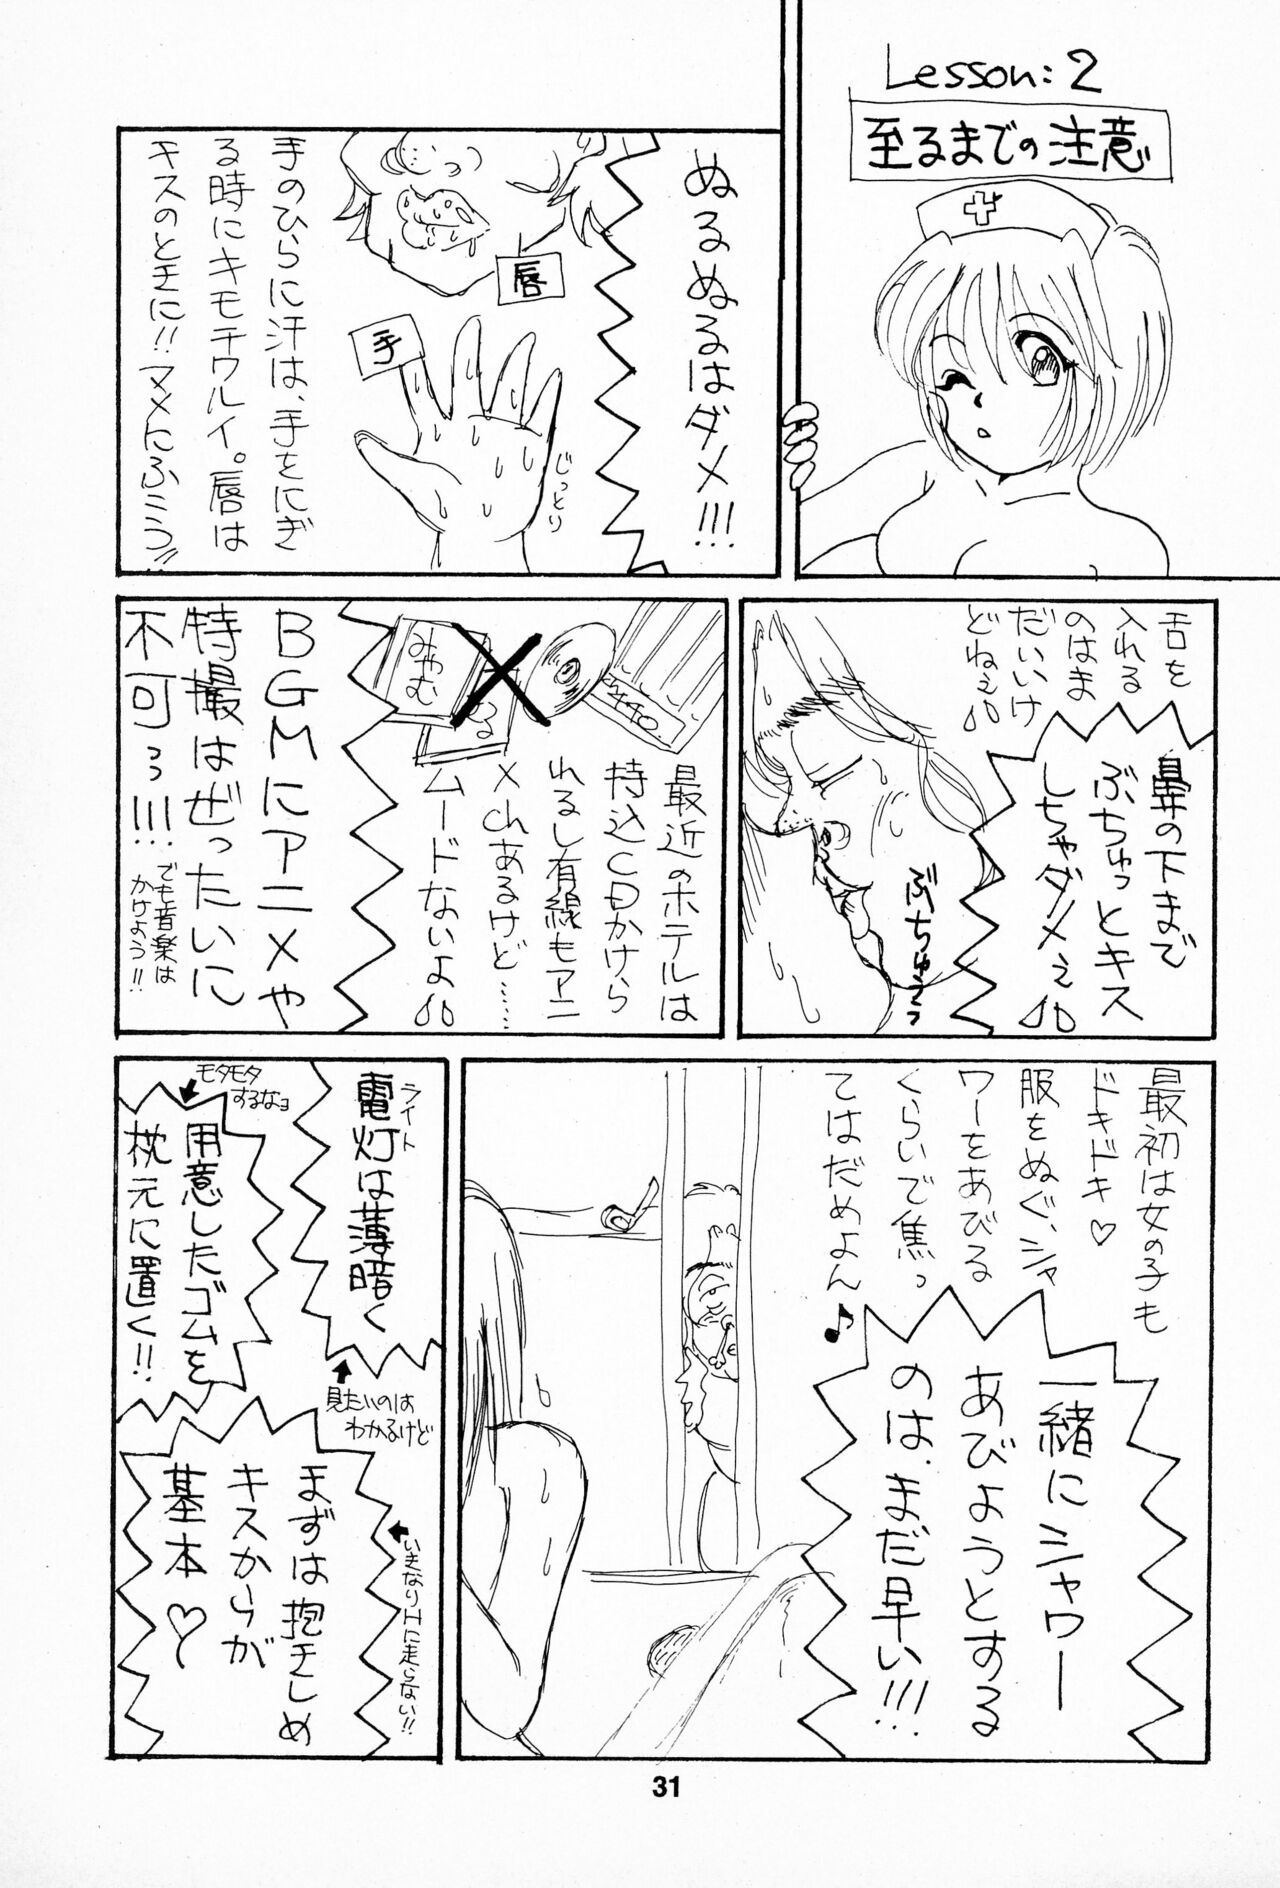 Lesson: 2
至るまでの注意
ぬるぬるはダメ!!!
唇
手
じっとり
手のひらに汗は、手をにぎ
る時にキモチワルイ。唇は
キスのときに!! マメにふこう!!
舌を
入れる
のはま
だいいけ
どねぇ
鼻の下まで
ぶちゅっとキス
しちゃダメぇ
ぶちゅうっ
みやむ
最近のホテルは
持込CDかけら
れるし有線もアニ
メchあるけど……
ムードないよ
BGMにアニメや
特撮はぜったいに
不可っ!!!
でも音楽は
かけよう!!
最初は女の子も
ドキドキ♡
服をぬぐ、シャ
ワーをあびる
くらいで焦っ
てはだめよん♪
一緒にシャワー
あびようとする
のは、まだ早い!!!
ライト
電灯は薄暗く
見たいのは
わかるけど
モタモタ
するなョ
用意したゴムを
枕元に置く!!
まずは抱きしめ
キスからが
基本♡
いきなりHに走らない!!
31